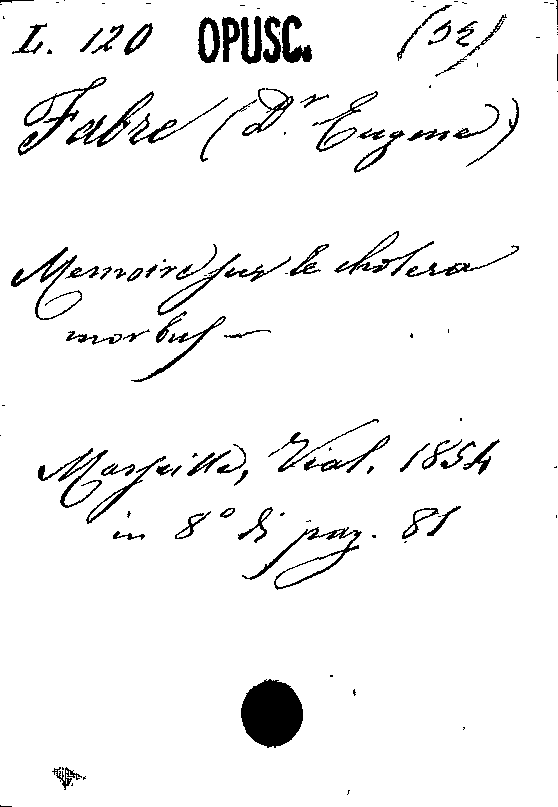 L. 120 OPUSC. (32)
Fabre (Dr. Eugene)
Memoire sur le cholera
morbus —
Marseille, Vial, 1854
in 8° di pag. 81